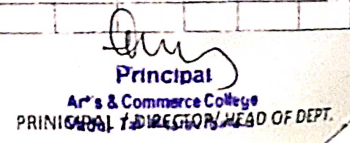 Principal
Art's & Commerce College
PRINICIPAL / DIRECTOR/ HEAD OF DEPT.